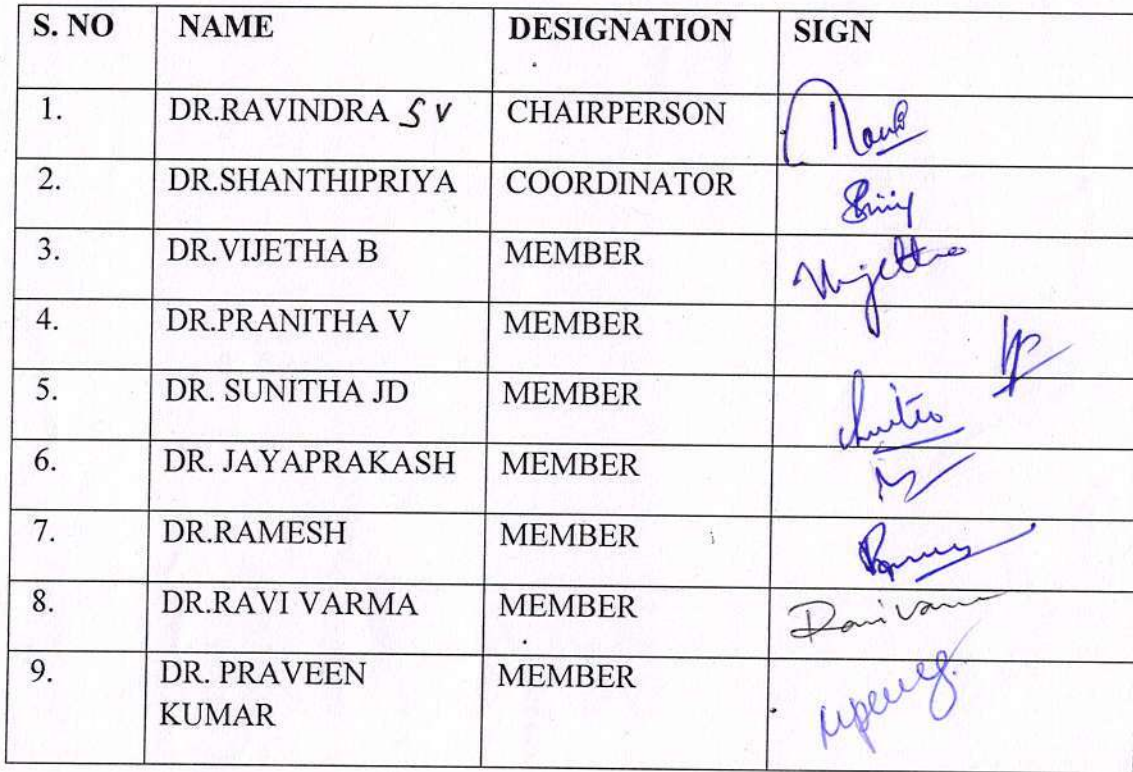 S. NO NAME DESIGNATION SIGN
1. DR.RAVINDRA S V CHAIRPERSON
2. DR.SHANTHIPRIYA COORDINATOR
3. DR.VIJETHA B MEMBER Vijetha
4. DR.PRANITHA V MEMBER
5. DR. SUNITHA JD MEMBER
6. DR. JAYAPRAKASH MEMBER
7. DR.RAMESH MEMBER
8. DR.RAVI VARMA MEMBER Ravi Varma
9. DR. PRAVEEN MEMBER
KUMAR